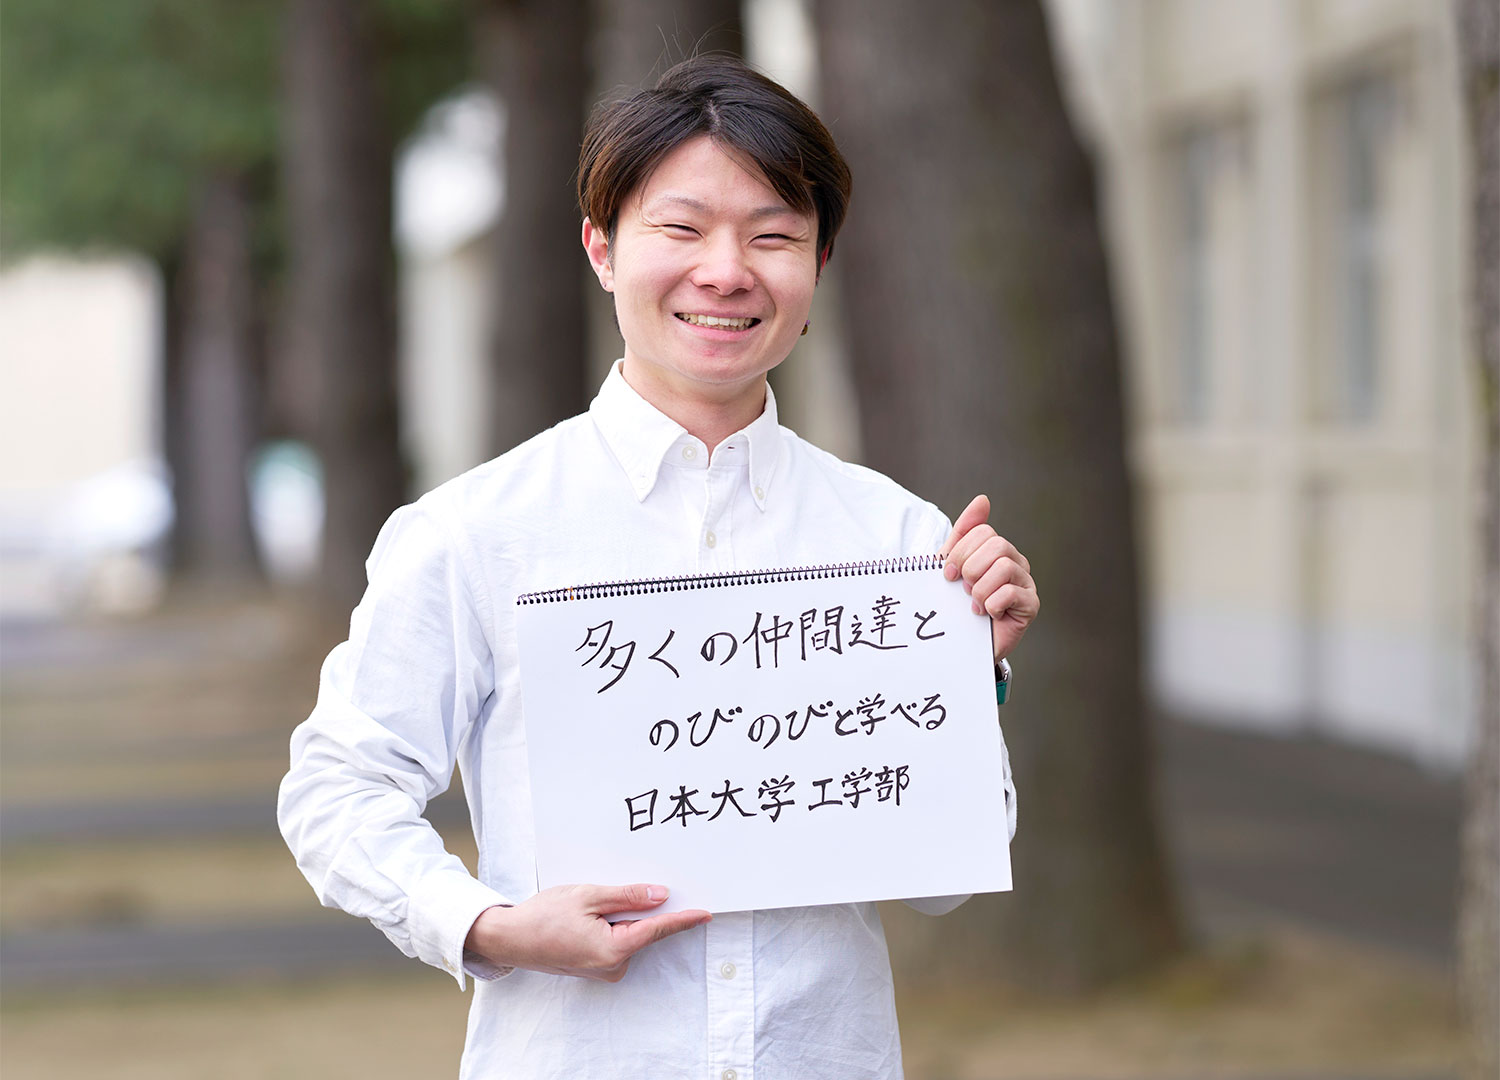 多くの仲間達と
のびのびと学べる
日本大学 工学部